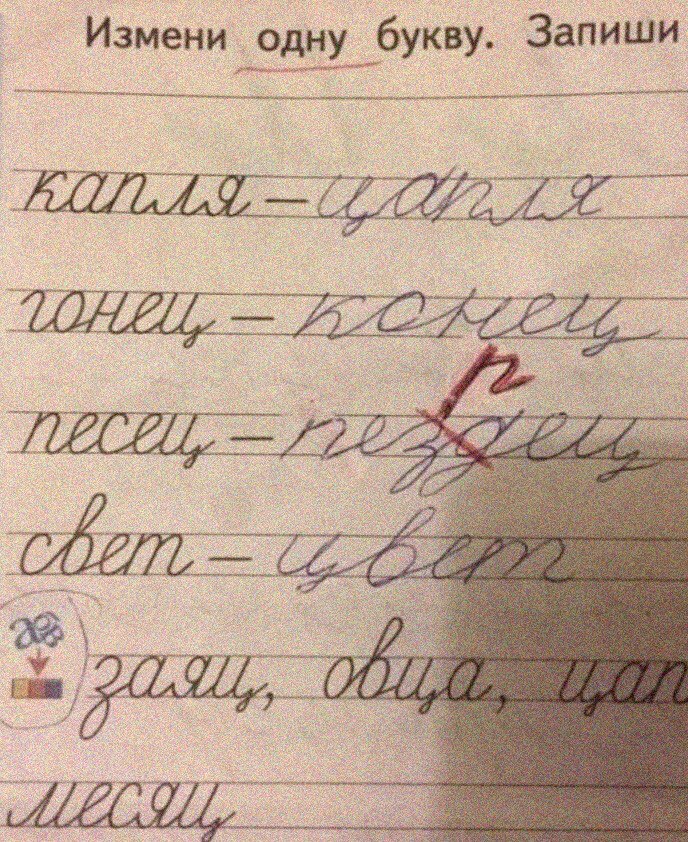 Измени одну букву. Запиши
капля – цапля
гонец – конец
р
песец – пездец
свет – цвет
заяц, овца, цап
месяц